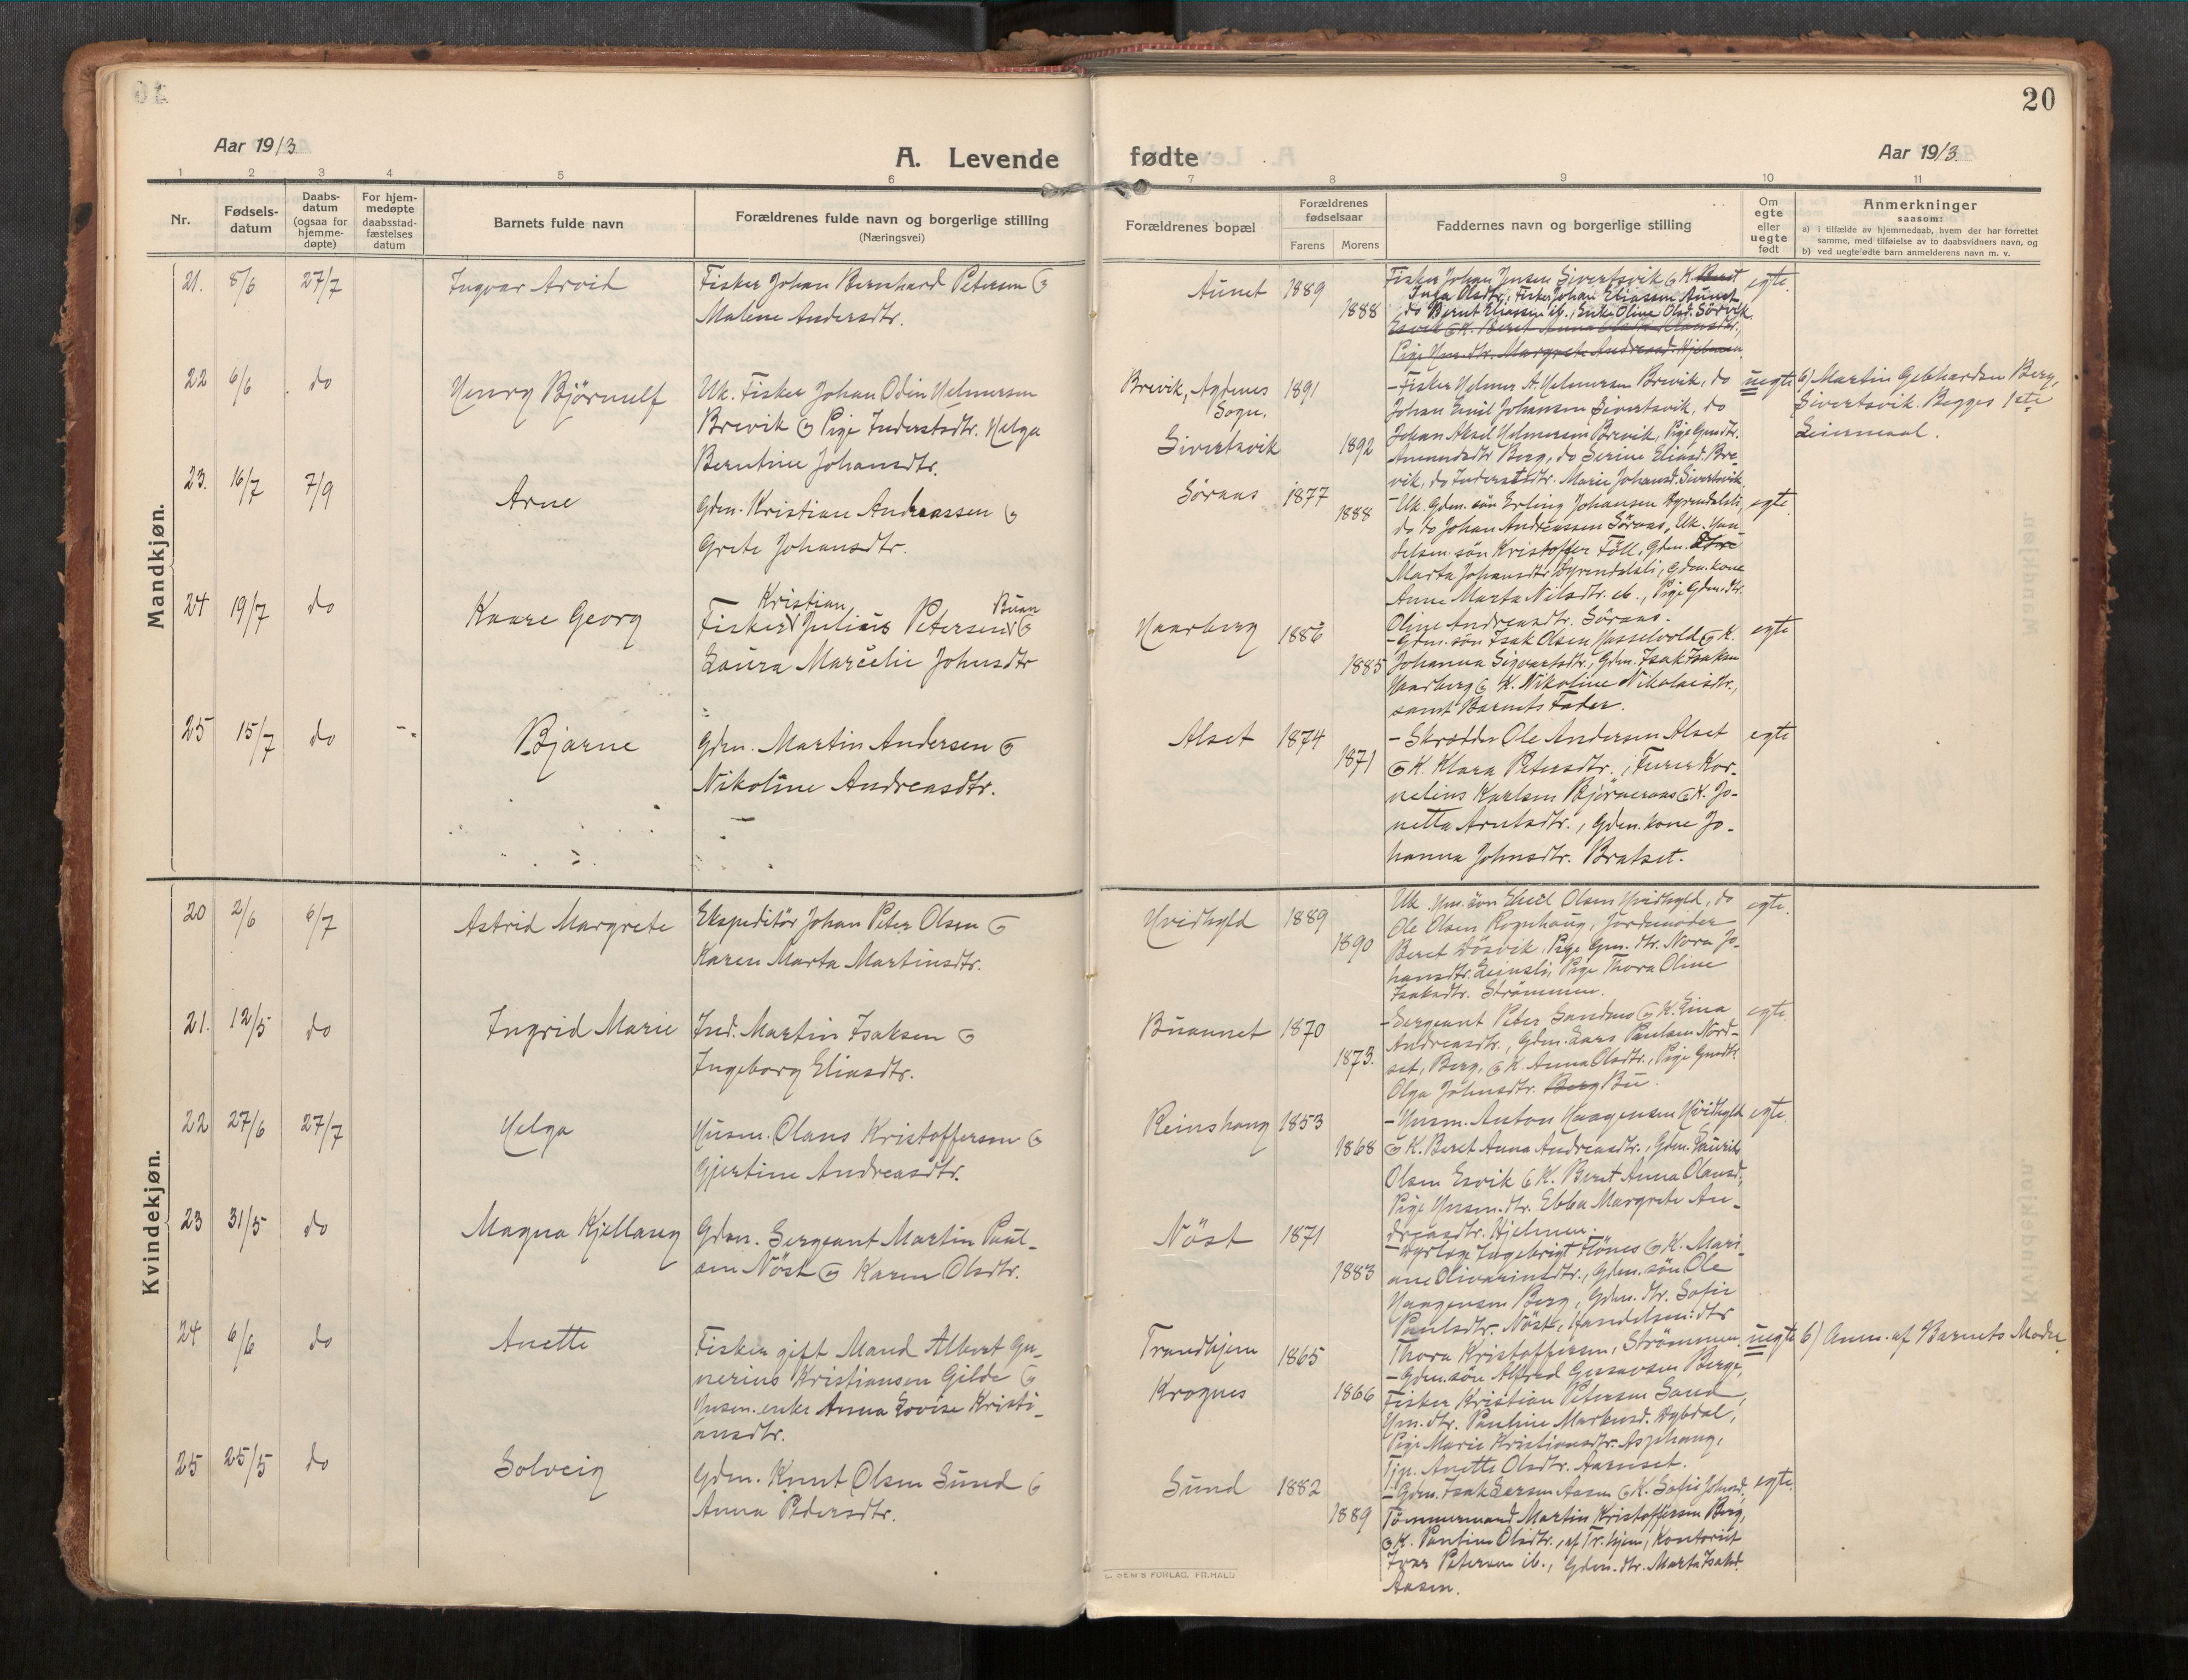 20
Aar 1913
A. Levende fødte
Aar 1913.
1 2 3 4 5 6 7 8 9 10 11
Nr.
Fødsels-
datum
Daabs-
datum
(ogsaa for
hjemme-
døpte)
For hjem-
medøpte
daabsstad-
fæstelses
datum
Barnets fulde navn
Forældrenes fulde navn og borgerlige stilling
(Næringsvei)
Forældrenes bopæl
Forældrenes
fødselsaar
Farens
Morens
Faddernes navn og borgerlige stilling
Om
egte
eller
uegte
født
Anmerkninger
saasom:
a) i tilfælde av hjemmedaab, hvem der har forrettet
samme, med tilføielse av to daabsvidners navn, og
b) ved uegte fødte barn anmelderens navn m. v.
Mandkjøn.
21. 8/6 27/7 Ingvar Arvid
Fisker Johan Bernhard Petersen &
Malene Andersdtr.
Aunet 1889
1888
Fisker Johan Jensen Sivertsvik & K. Beret
Inga Olsdtr., Fisker Johan Eliassen Aunet
do Bernt Eliassen ib., Enke Oline Olsd. Sörvik
Esvik & K. Beret Anna
Pige Hm. dtr. Margrete Andreasd. Hjelmen.
egte.
22 6/6 do Henry Björnulf
Uk. Fisker Johan Odin Helmersen
Brevik & Pige Inderstsdtr. Helga
Berntine Johansdtr.
Brevik, Agdenes
Sogn.
1891
Sivertsvik 1892
- Fisker Helmer A. Helmersen Brevik, do
Johan Emil Johansen Sivertsvik, do
Johan Aksel Helmersen Brevik, Pige Gmdtr.
Amundsdtr Berg, do Serine Eliasd. Bre-
vik, do Inderstsdtr. Marie Johansd. Sivertsvik.
uegte
b) Martin Gebhardsen Berg,
Sivertsvik. Begges 1ste
Leiermaal.
23. 16/7 7/9 Arne
Gdm. Kristian Andreassen &
Grete Johansdtr.
Söraas 1877
1888
- Uk. Gdm. sön Erling Johansen Dyrendalsli,
do do Johan Andreassen Söraas, Uk. Han-
delsm. sön Kristoffer Föll, Gdm.
Marta Johansdtr Dyrendalsli, Gdm. kone
Anne Marta Nilsdtr. ib., Pige Gdm. dtr.
Oline Andreasdtr. Söraas.
egte.
24 19/7 do Kaare Georg
Kristian Buan
Fisker Julius Petersen &
Laura Marcelie Johnsdtr
Haarberg 1886
1885
- Gdm. sön Isak Olsen Hasselvold & K.
Johanna Sigvartsdtr., Gdm. Isak Isaksen
Haarberg & K. Nikoline Nikolaisdtr.,
samt Barnets Fader.
egte
25 15/7 do Bjarne
Gdm. Martin Andersen &
Nikoline Andreasdtr.
Alset 1874
1871
- Skrædder Ole Andersen Alset
& K. Klara Petersdtr., Furer Kor-
nelius Karlsen Björneraas & K. Jo-
netta Arntsdtr., Gdm. kone Jo-
hanna Johnsdtr. Bratset.
egte
Kvindekjøn.
20 2/6 6/7 Astrid Margrete
Ekspeditör Johan Peter Olsen &
Karen Marta Martinsdtr.
Hvidhyld 1889
1890
Uk. Hm. sön Eliot Olsen Hvidhyld, do
Ole Olsen Rognhaug, Jordmoder
Beret Dösvik, Pige Gm. dtr. Nora Jo-
hansdtr. Leinsli, Pige Thora Oline
Isaksdtr. Strömmen.
egte.
21. 12/5 do Ingrid Marie
Ind. Martin Isaksen &
Ingeborg Eliasdtr.
Buaunet 1870
1873.
- Sergeant Peter Sandnes & K. Gina
Andreasdtr., Gdm. Lars Paulsen Nord-
set, Berg, & K. Anna Olsdtr., Pige Gmdtr.
Olga Johnsdtr. Berg Bu.
egte.
22 27/6 27/7 Helga
Husm. Olaus Kristoffersen &
Gjertine Andreasdtr.
Reinshaug 1853
1868
- Husm. Anton Haagensen Hvidhyld
& K. Beret Anna Andreasdtr., Gdm. Laurits
Olsen Esvik & K. Beret Anna Olausd.,
Pige Husm. dtr. Ebba Margrete An-
dreasdtr. Hjelmen.
egte.
23 31/5 do Magna Kjellaug
Gdm. Sergeant Martin Paul-
sen Nöst & Karen Olsdtr.
Nöst 1871
1883
- Dyrlæge Ingebrigt Flönes & K. Mari-
ane Olivarinsdtr., Gdm. sön Ole
Haagensen Berg, Gdm. dtr. Sofie
Paulsdtr. Nöst, Handelsm. dtr
Thora Kristoffersen, Strömmen.
24 6/6 do Anette
Fisker gift Mand Albert Gu-
nerius Kristiansen Gilde &
Husm. enke Anna Lovise Kristi-
ansdtr.
Trondhjem 1865
Krognes 1866
- Gdm. sön Alfred Gustavsen Berge,
Fisker Kristian Petersen Sand,
Hm. dtr. Pauline Markusd. Dybdal,
Pige Marie Kristiansdtr. Asphaug,
Tjp. Anette Olsdtr. Aarnset.
uegte
b) Anm. af Barnets Moder
25 25/5 do Solveig
Gdm. Knut Olsen Sund &
Anna Pedersdtr.
Sund 1882
1889
- Gdm. Isak Larsen Aasen & K. Sofie Johnsd.,
Tömmermand Martin Kristoffersen Berg,
& K. Pauline Olsdtr., af Tr. hjem, Kontorist
Ivar Petersen ib., Gdm. dtr. Marta Isaksd.
Aasen.
egte.
FORLAG. FR. HALD